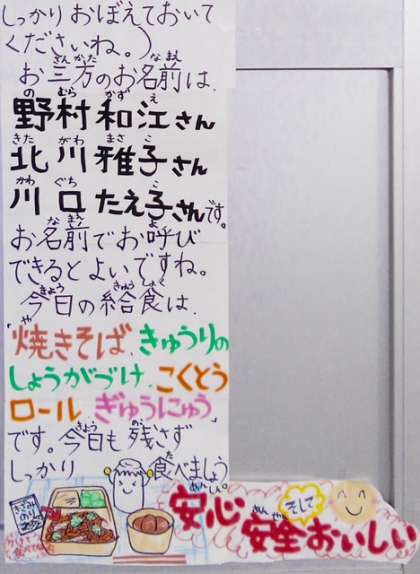 しっかりおぼえておいて
くださいね。)
お三方のお名前は、
野村和江さん
北川雅子さん
川口たえ子さんです。
お名前でお呼び
できるとよいですね。
今日の給食は、
焼きそば、きゅうりの
しょうがづけ、こくとう
ロール ぎゅうにゅう
です。今日も残さず
しっかり 食べましょう
安心 そして
安全おいしい